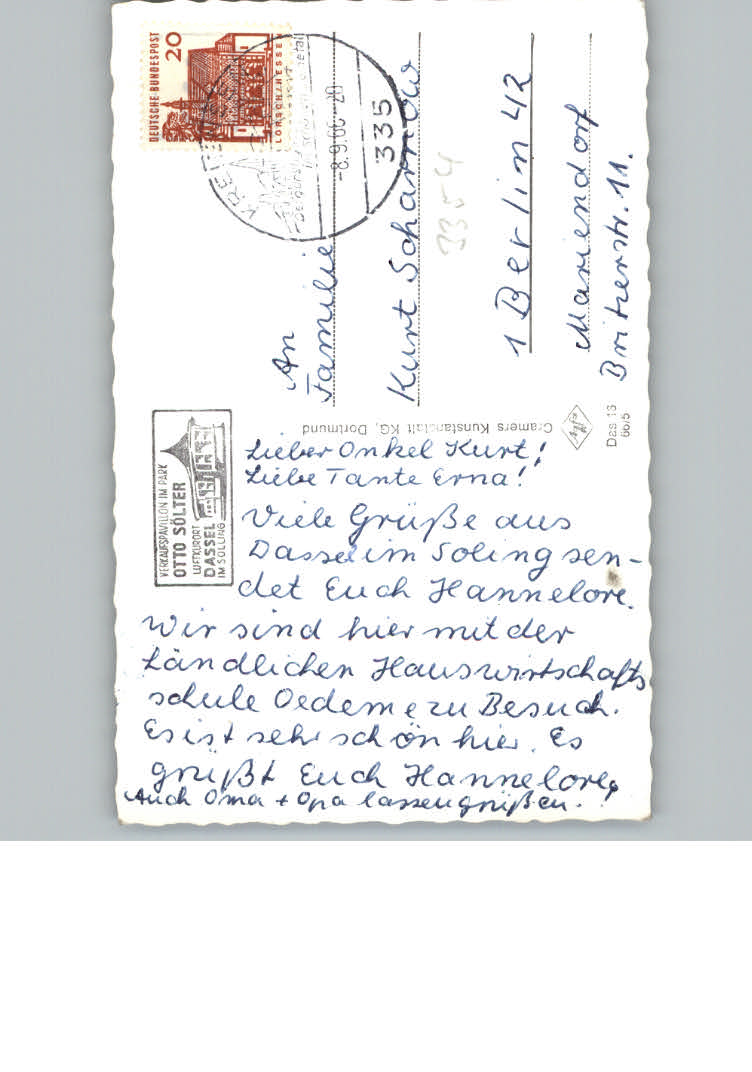 DEUTSCHE·BUNDESPOST
20
LORSCH/HESSEN
-8.9.66-20
335
3354
An
Familie
Kurt Scharnow
1 Berlin 42
Mariendorf
Britzerstr. 11.
Cramers Kunstanstalt KG, Dortmund
Agfa
Das 13
66/5
VERKAUFSPAVILLON IM PARK
OTTO SÖLTER
LUFTKURORT
DASSEL
IM SOLLING
Lieber Onkel Kurt!
Liebe Tante Erna!
Viele Grüße aus
Dassel im Soling sen-
det Euch Hannelore.
Wir sind hier mit der
Ländlichen Hauswirtschafts
schule Oedeme zu Besuch.
Es ist sehr schön hier. Es
grüßt Euch Hannelore.
Auch Oma + Opa lassen grüßen.!